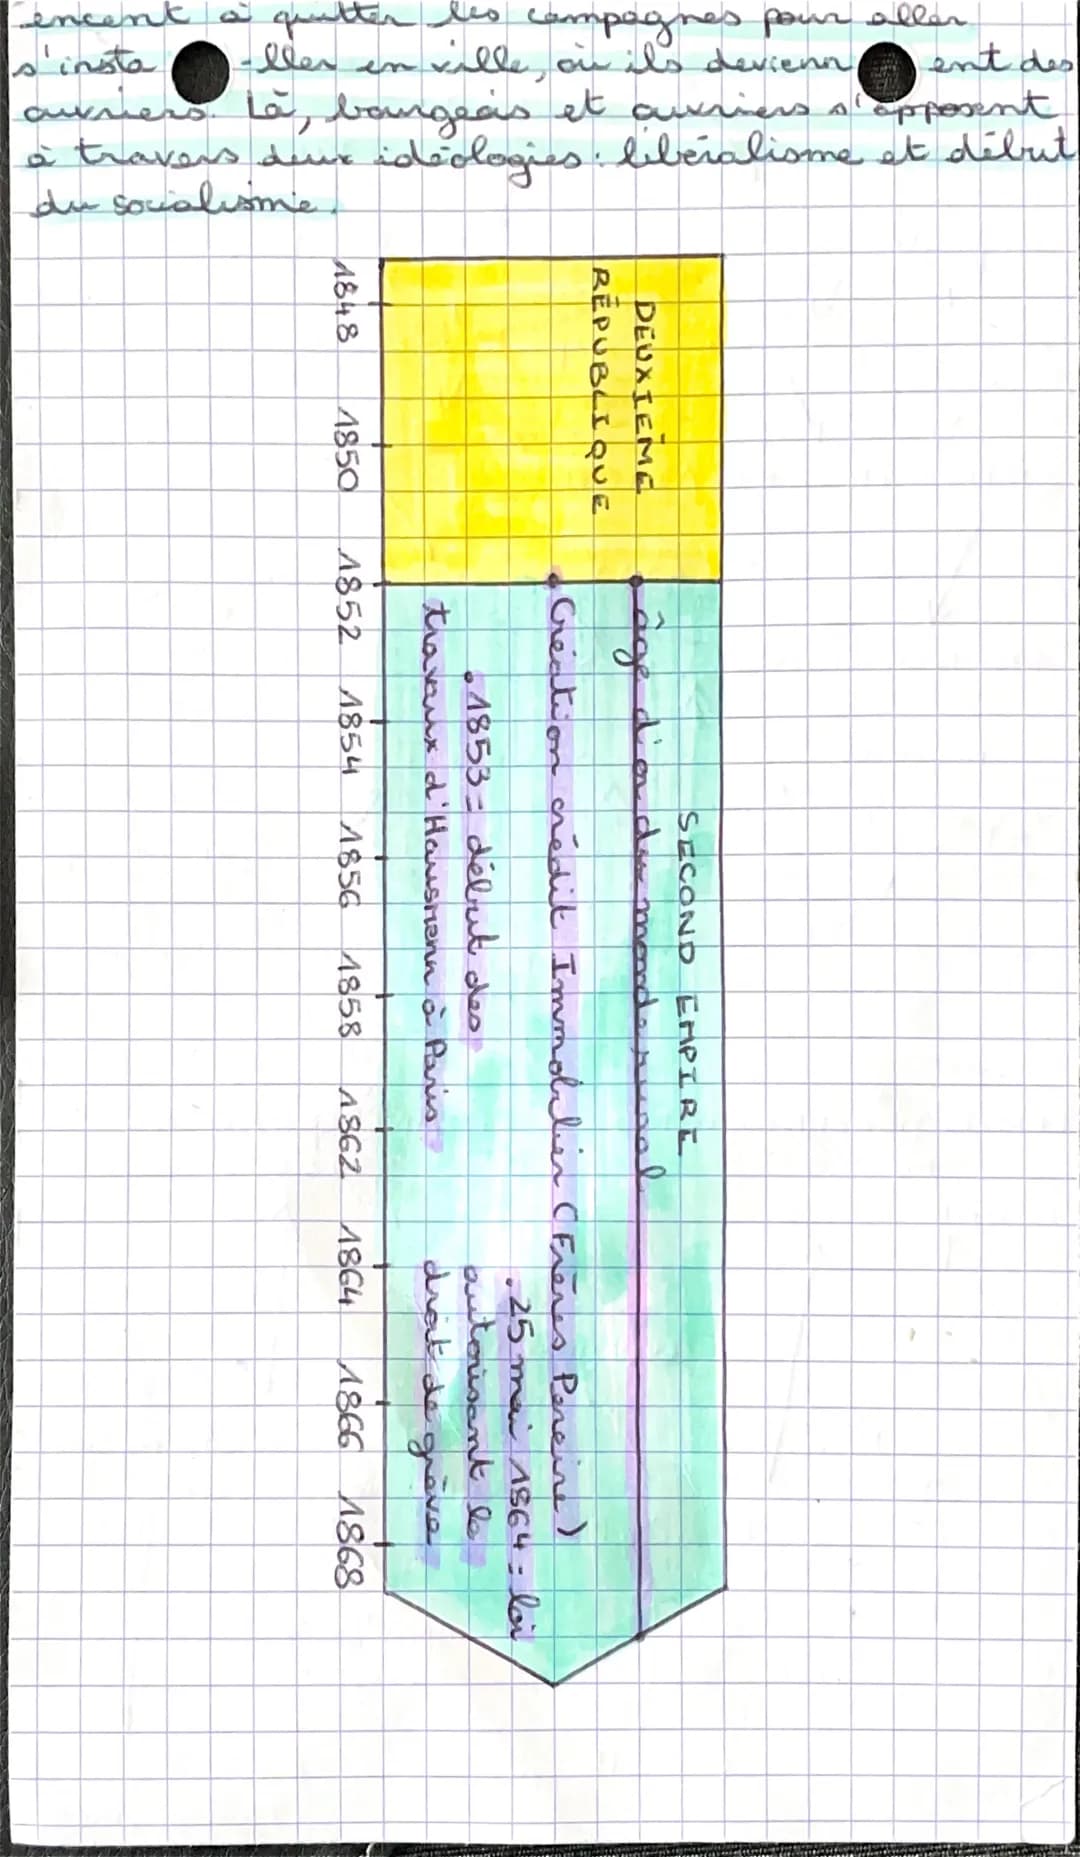 encent à quitter les campagnes pour aller
s'insta -ller en ville, où ils devienn ent des
ouvriers. Là, bourgeois et ouvriers s'opposent
à travers deux idéologies : libéralisme et début
du socialisme.
DEUXIEME
RÉPUBLIQUE
SECOND EMPIRE
âge d'or du monde rural
Création crédit Immobilier (Frères Pereire)
.25 mai 1864 = loi
autorisant le
droit de grève
.1853 = début des
travaux d'Hausmann à Paris
1848 1850 1852 1854 1856 1858 1862 1864 1866 1868